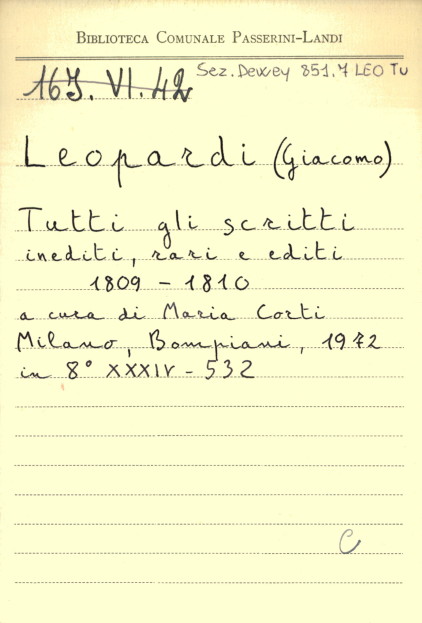 BIBLIOTECA COMUNALE PASSERINI-LANDI
Sez. Dewey 851.7 LEO Tu
16J. VI. 42
Leopardi (Giacomo)
Tutti gli scritti
inediti, rari e editi
1809 - 1810
a cura di Maria Corti
Milano, Bompiani, 1972
in 8° XXXIV - 532
C